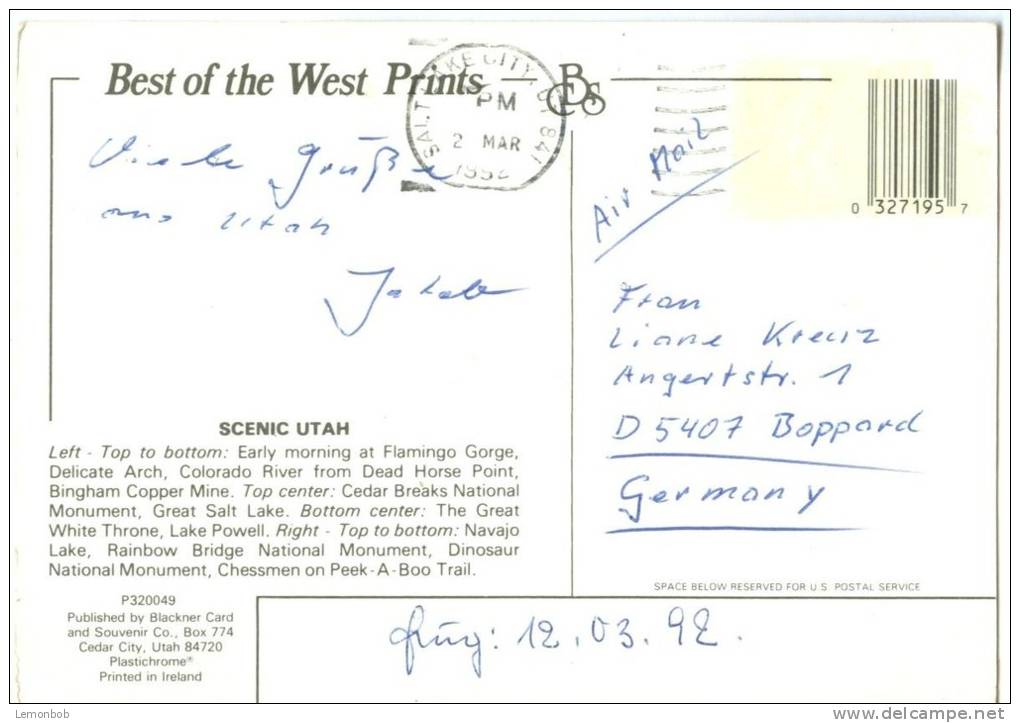 Best of the West Prints
BCDS
SALT LAKE CITY, UT 841
PM
2 MAR
1992
Viele Grüße
aus Utah
Jakob
Air Mail
0 327195 7
Frau
Liane Kreuz
Angertstr. 1
D 5407 Boppard
Germany
SCENIC UTAH
Left - Top to bottom: Early morning at Flamingo Gorge,
Delicate Arch, Colorado River from Dead Horse Point,
Bingham Copper Mine. Top center: Cedar Breaks National
Monument, Great Salt Lake. Bottom center: The Great
White Throne, Lake Powell. Right - Top to bottom: Navajo
Lake, Rainbow Bridge National Monument, Dinosaur
National Monument, Chessmen on Peek-A-Boo Trail.
SPACE BELOW RESERVED FOR U.S. POSTAL SERVICE
P320049
Published by Blackner Card
and Souvenir Co., Box 774
Cedar City, Utah 84720
Plastichrome®
Printed in Ireland
12.03.92.
Lemonbob
delcampe.net